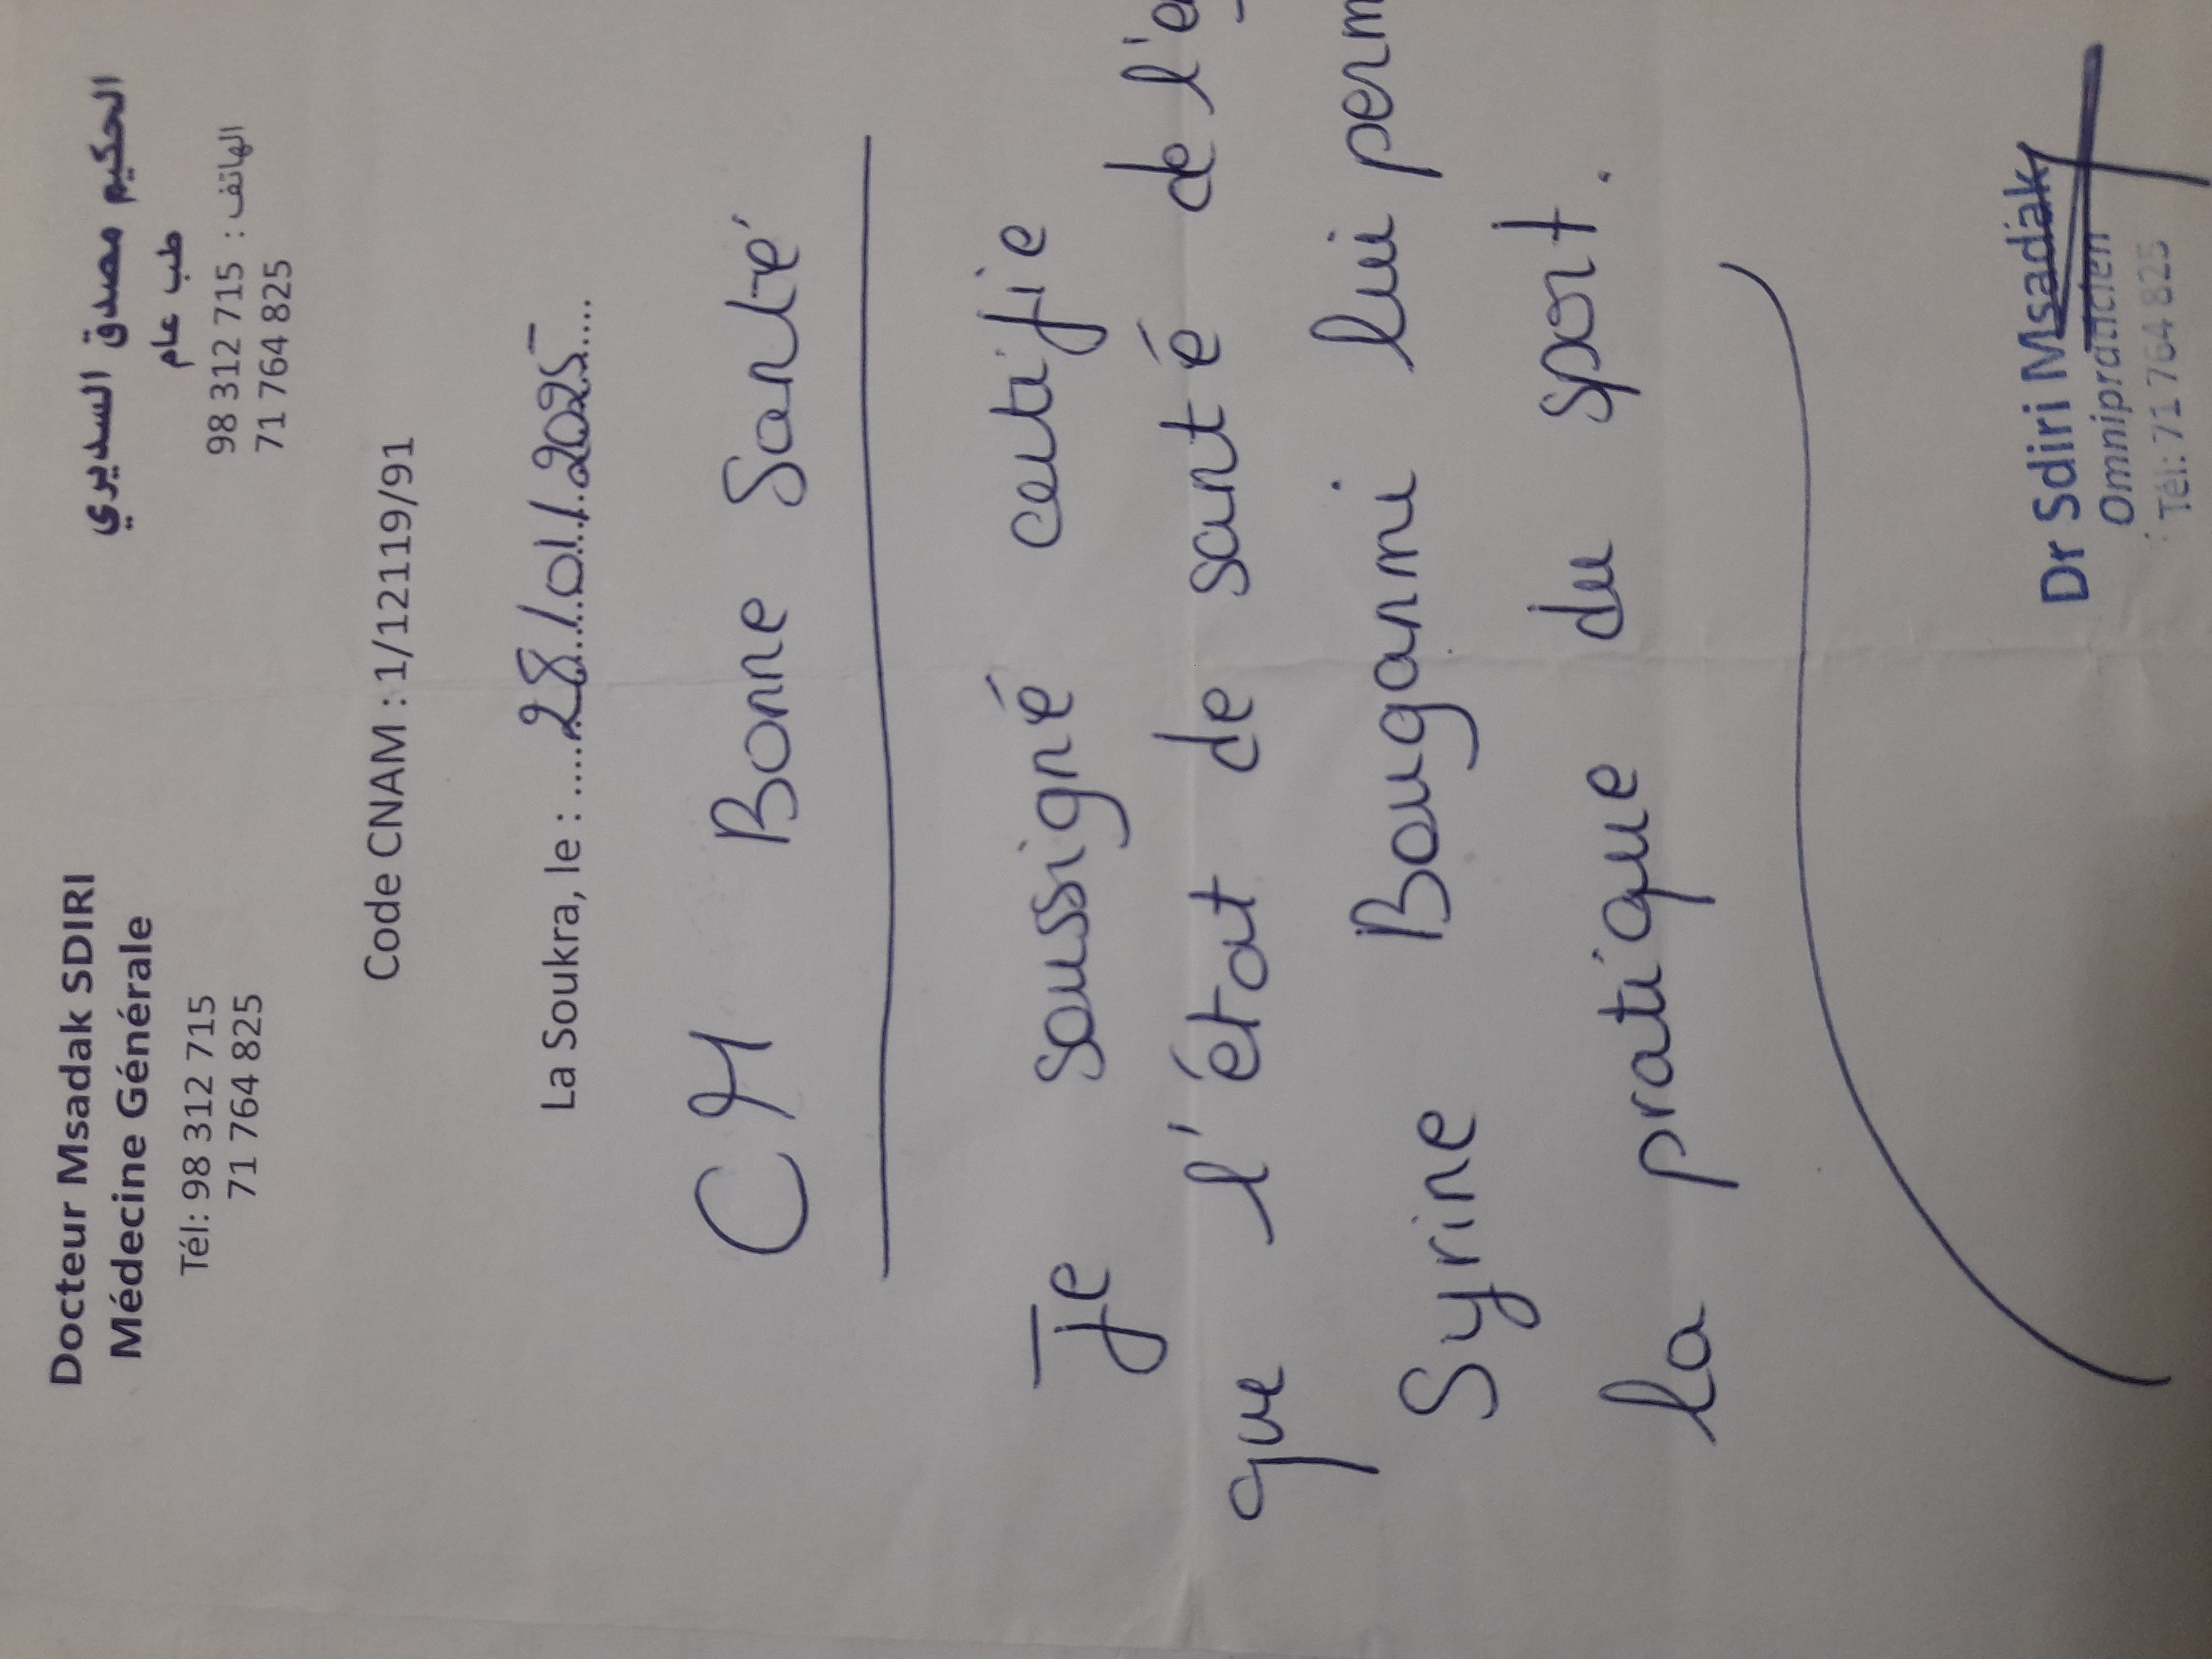 Docteur Msadak SDIRI
Médecine Générale
Tél: 98 312 715
71 764 825
الحكيم مصدق السديري
طب عام
الهاتف : 98 312 715
71 764 825
Code CNAM : 1/12119/91
La Soukra, le : 28/01/2025
CM Bonne Santé
Je soussigné certifie
que l'état de santé de l'e
Syrine Bouganmi lui perm
la pratique du sport.
Dr Sdiri Msadak
Omnipraticien
Tél: 71 764 825